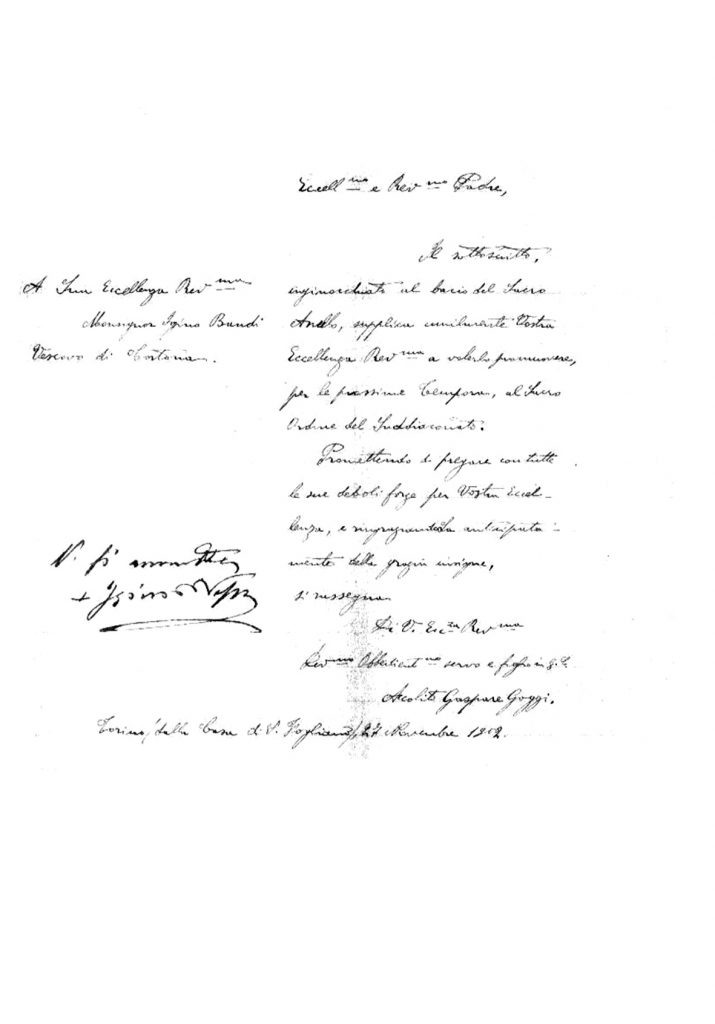 Eccell.mo e Rev.mo Padre,
Il sottoscritto,
A Sua Eccellenza Rev.ma
Monsignor Igino Bandi
Vescovo di Tortona.
inginocchiato al bacio del Sacro
Anello, supplica umilmente Vostra
Eccellenza Rev.ma a volerlo promuovere,
per le prossime Tempora, al Sacro
Ordine del Suddiaconato.
Promettendo di pregare con tutte
le sue deboli forze per Vostra Eccel-
lenza, e ringraziandola anticipata-
mente della grazia insigne,
si rassegna
Di V. Ecc.za Rev.ma
Obbedient.mo servo e figlio in G. C.
Accolito Gaspare Goggi.
V. si ammette
+ Igino Vesc
Torino, dalla Casa di 27 Novembre 1902.